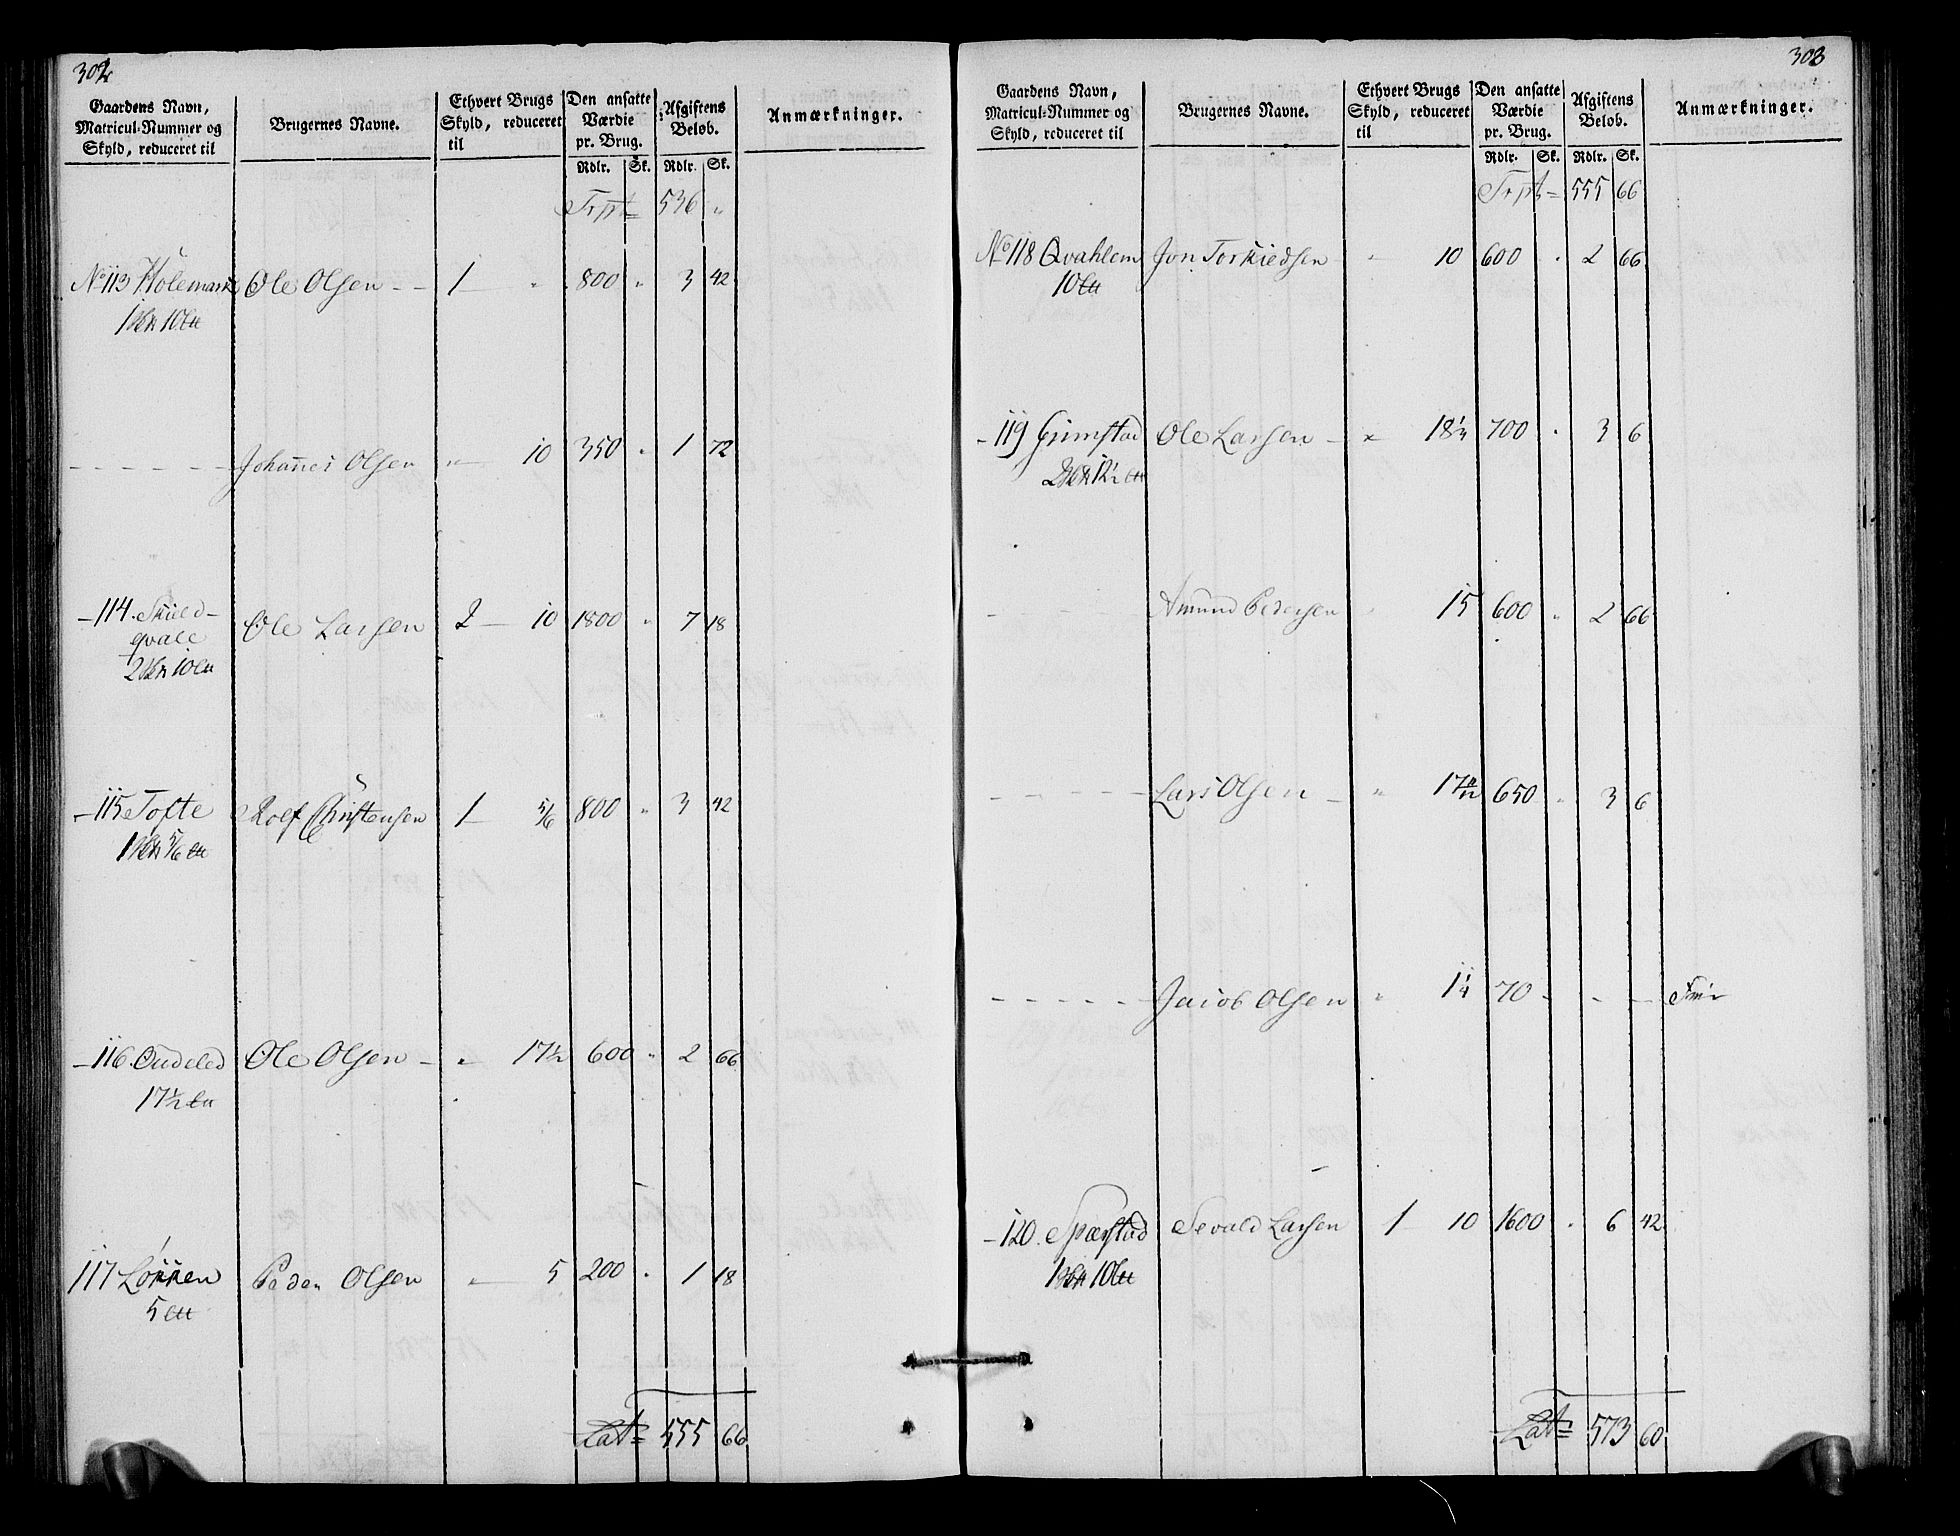 302
Gaardens Navn, Matricul-Nummer og Skyld, reduceret til | Brugernes Navne. | Ethvert Brugs Skyld, reduceret til | Den ansatte Værdie pr. Brug. | Afgiftens Beløb. | Anmærkninger.
Rdlr. Sk. Rdlr. Sk.
Trpt 536 "
No 113 Holemark Ole Olsen - - 1 " 800 " 3 42
10
- - - - - - Johannes Olsen " 10 350 " 1 72
- 114. Skield-
qvale Ole Larsen 2 - 10 1800 " 7 18
2 10
- 115 Tofte Rolf Christensen 1 - 5/6 800 " 3 42
1 5/6
- 116. Oudeled Ole Olsen - " 17 1/2 600 " 2 66
17 1/2
117 Løkken Peder Olsen " 5 200 " 1 18
5
Lat 555 66
303
Gaardens Navn, Matricul-Nummer og Skyld, reduceret til | Brugernes Navne. | Ethvert Brugs Skyld, reduceret til | Den ansatte Værdie pr. Brug. | Afgiftens Beløb. | Anmærkninger.
Rdlr. Sk. Rdlr. Sk.
Trpt 555 66
No 118 Qvahlem Jon Torkiedsen " 10 600 " 2 66
10
- 119 Grimstad Ole Larsen - " 18 1/4 700 " 3 6
2 12 1/2
- - - - Amund Pedersen " 15 600 " 2 66
- - - - - Lars Olsen - " 17 650 " 3 6
- - - - - Jacob Olsen " 1 1/4 70 - - -
- 120. Spærstad Sevald Larsen 1 10 1600 " 6 42
1 10
Lat 573 60